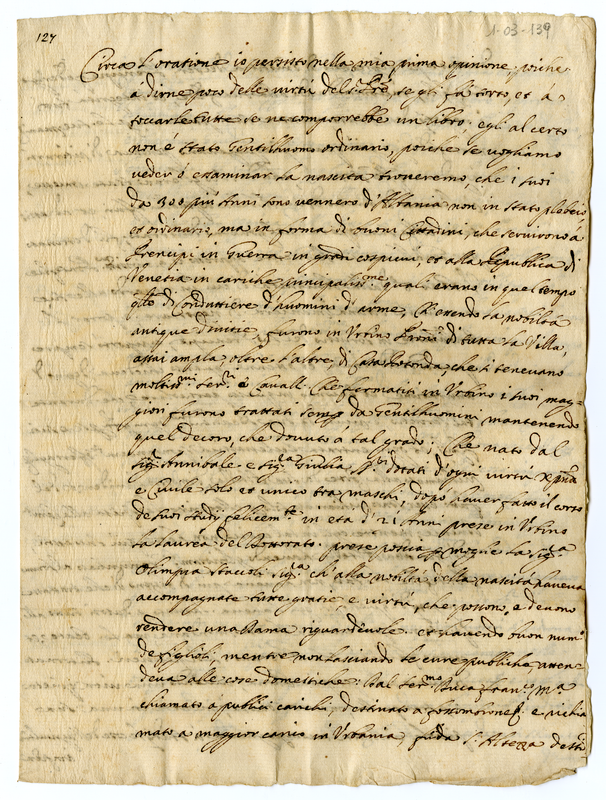 127
1-03-139
Circa l'oratione io persisto nella mia prima opinione, poiche
á dirne poco delle virtú del Sr. Pre, se gli fá torto, et á
toccarle tutte se ne comporrebbe un libro; egli al certo
non é stato Gentilhuomo ordinario, poiche se vogliamo
veder ó essaminar la nascita troveremo, che i suoi
da 300 piú Anni sono vennero d'Albania non in stato plebeio
et ordinario, ma in forma di buoni Cittadini, che servirono á
Prencipi in Guerra in gradi cospicui, et alla Republica di
Venetia in cariche principalissme. quali erano in quel tempo
qllo di Conduttiere d'huomini d'arme, Ch'essendo la nobiltá
antique divitie, furono in Urbino di tutta la Villa,
assai ampla oltre l'altre, di Casa Rotonda, che si tenevano
moltissmi. e Cavalli. Che fermatisi in Urbino i suoi mag=
giori furono trattati sempre da Gentilhuomini mantenendo
quel decoro, che dovuto á tal grado; Che nato dal
Sigr. Annibale e Siga. Giulia dotati d'ogni virtú
e Civile solo et unico tra maschi, dopo haver fatto il corso
de suoi studij felicemte. in eta d'21 Anni prese in Urbino
la laurea del Dottorato. prese poscia p moglie la Sigra
Olimpia Staccoli Siga. ch'alla nobiltá della nascita haveva
accompagnate tutte gratie, e virtú, che possono, e devono
rendere una Dama riguardevole. et havendo buon numo
de figlioli, mentre non lasciando le cure publiche, atten=
deva alle cose domestiche: Dal Sermo Duca Franco Ma
chiamato a publici carichi, destinato a fossombrone e richia
mato a maggior carico in Urbania, S. Altezza